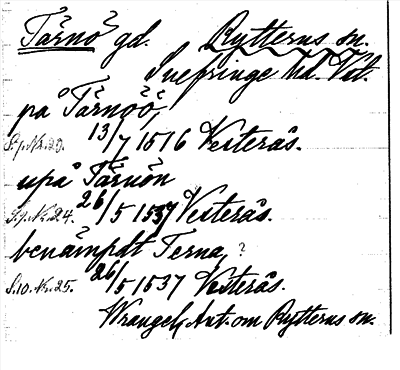 Tärnö gd. Rytterns sn.
Snefringe hd. Vst.
på Tärnöö,
S. 9. Nr. 23. 13/7 1516 Vesterås.
upå Tärnön
S. 9. Nr. 24. 26/5 1537 Vesterås.
benämpdt Terna ?
S. 10. Nr. 25. 26/5 1537 Vesterås.
Wrangel, Ant. om Rytterns sn.